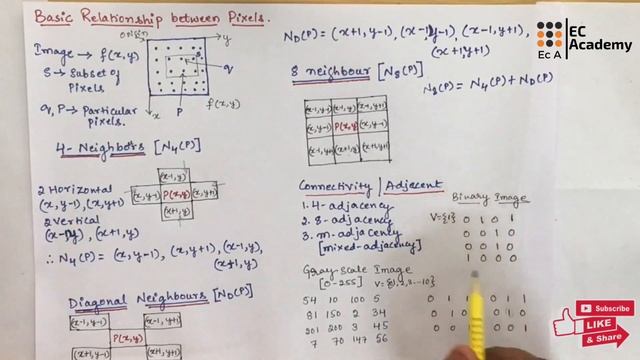 Basic Relationship between Pixels.
Image → f(x,y)
S → Subset of
Pixels
q, P → Particular
Pixels.
origin
y
S
q
P
x
f(x,y)
4-Neighbors [N4(P)]
2 Horizontal
(x, y-1), (x, y+1)
2 Vertical
(x-1,y) , (x+1, y)
∴ N4(P) = (x, y-1), (x, y+1), (x-1, y),
(x+1, y)
(x-1, y)
(x, y-1) P(x, y) (x, y+1)
(x+1, y)
Diagonal Neighbours [ND(P)]
(x-1, y-1) (x-1, y+1)
P(x, y)
(x+1, y-1) (x+1, y+1)
ND(P) = (x+1, y-1), (x-1, y-1), (x-1, y+1),
(x+1, y+1)
8 neighbour [N8(P)]
N8(P) = N4(P) + ND(P)
(x-1, y-1) (x-1, y) (x-1, y+1)
(x, y-1) P(x, y) (x, y-1)
(x+1, y-1) (x+1, y) (x+1, y+1)
Connectivity / Adjacent
1. 4-adjacency
2. 8-adjacency
3. m-adjacency
[mixed-adjacency]
Binary Image
V={1} 0 1 0 1
0 0 1 0
0 0 1 0
1 0 0 0
Gray-Scale Image
[0-255] V={1,2,3...10}
54 10 100 5
81 150 2 34
201 200 3 45
7 70 147 56
0 1 1 0 1 1
0 1 0 0
0 0 0 0 1
EC
Academy
Ec A
Subscribe
LIKE
& Share